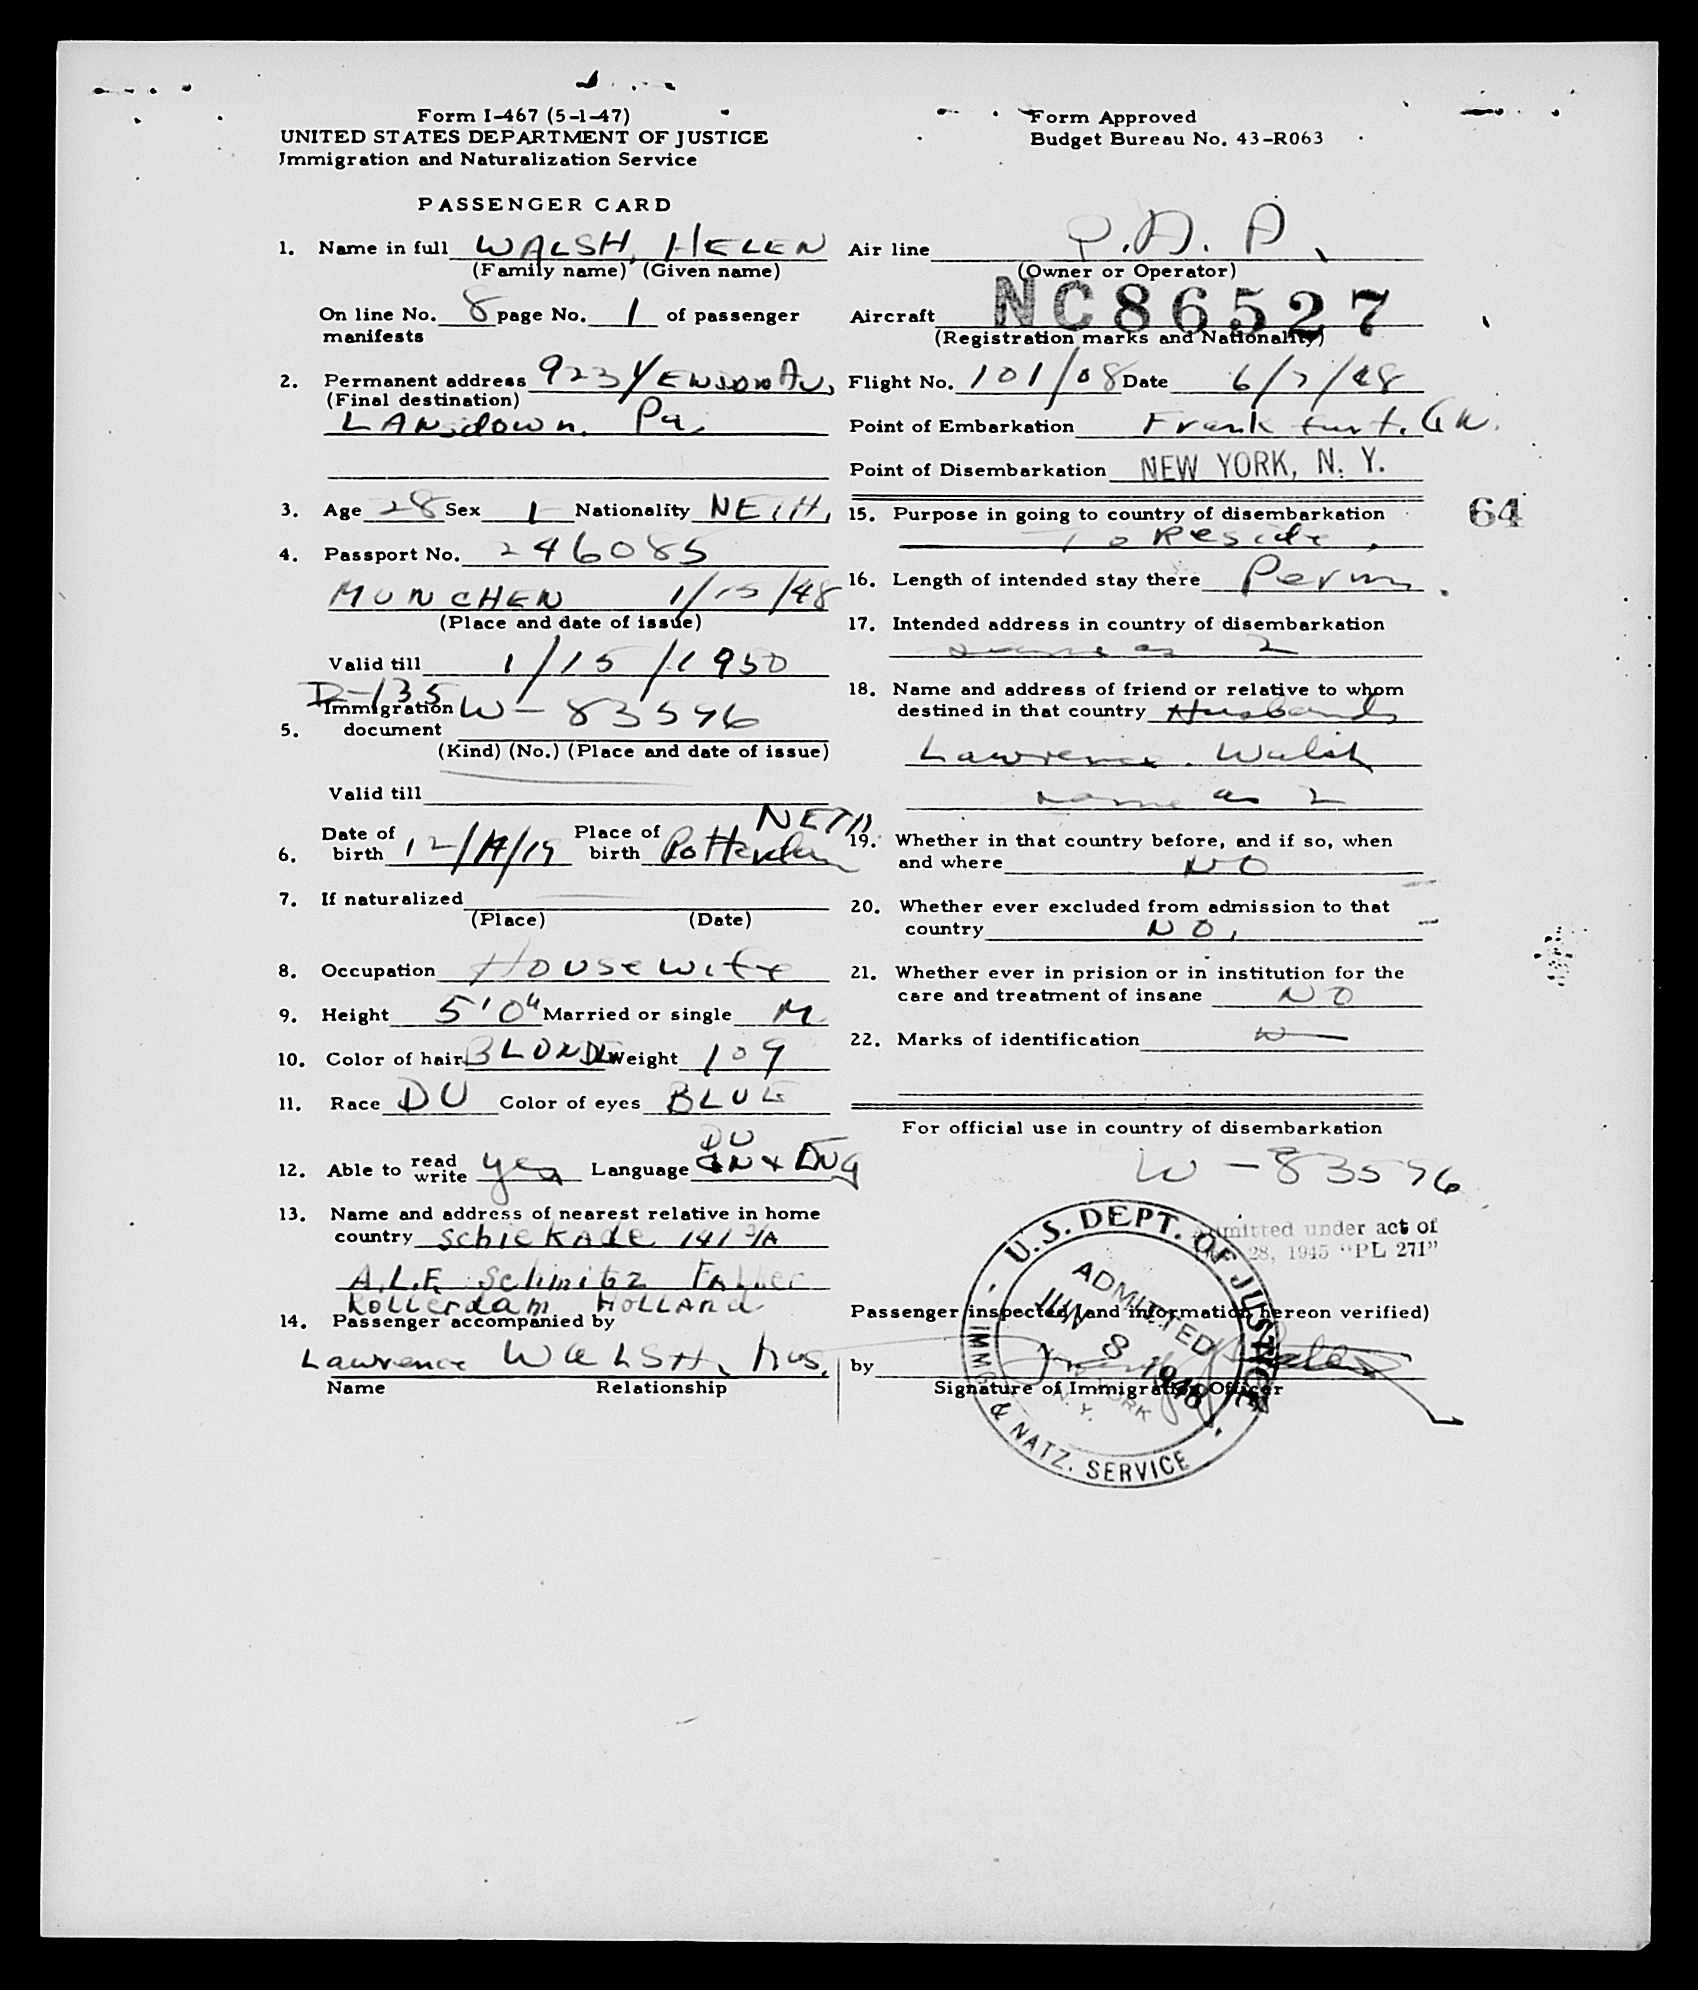 Form I-467 (5-1-47)
UNITED STATES DEPARTMENT OF JUSTICE
Immigration and Naturalization Service
Form Approved
Budget Bureau No. 43-R063
PASSENGER CARD
1. Name in full WALSH, HELEN
(Family name) (Given name)
On line No. 8 page No. 1 of passenger
manifests
2. Permanent address 923 Av,
(Final destination)
LANsdown. Pa.
3. Age 28 Sex Nationality NETH,
4. Passport No. 246085
MUNCHEN 1/15/48
(Place and date of issue)
Valid till 1/15/1950
D-135
5. Immigration document W-83596
(Kind) (No.) (Place and date of issue)
Valid till
NETH
6. Date of birth 12/ /19 Place of birth
7. If naturalized
(Place) (Date)
8. Occupation Housewife
9. Height 5'0" Married or single M
10. Color of hair BLONDE Weight 109
11. Race DU Color of eyes BLUE
DU
12. Able to read write yes Language GN + ENG
13. Name and address of nearest relative in home
country Schiekade 141
A.L.F. Schmitz Father
Rotterdam HOLLAND
14. Passenger accompanied by
Lawrence WALSH, Hus.
Name Relationship
Air line P.A.A.
(Owner or Operator)
Aircraft NC86527
(Registration marks and Nationality)
Flight No. 101/08 Date 6/7/48
Point of Embarkation Frankfurt. GN.
Point of Disembarkation NEW YORK, N. Y.
64
15. Purpose in going to country of disembarkation
To Reside
16. Length of intended stay there Perm.
17. Intended address in country of disembarkation
same as 2
18. Name and address of friend or relative to whom
destined in that country Husband
Lawrence Walsh
same as 2
19. Whether in that country before, and if so, when
and where NO
20. Whether ever excluded from admission to that
country NO.
21. Whether ever in prision or in institution for the
care and treatment of insane NO
22. Marks of identification
For official use in country of disembarkation
W-83596
Admitted under act of
28, 1945 "PL 271"
Passenger inspected (and information hereon verified)
by
Signature of Immigration Officer
U.S. DEPT. OF JUSTICE
IMMG. & NATZ. SERVICE
ADMITTED
JUN 8 1948
NEW YORK
N. Y.